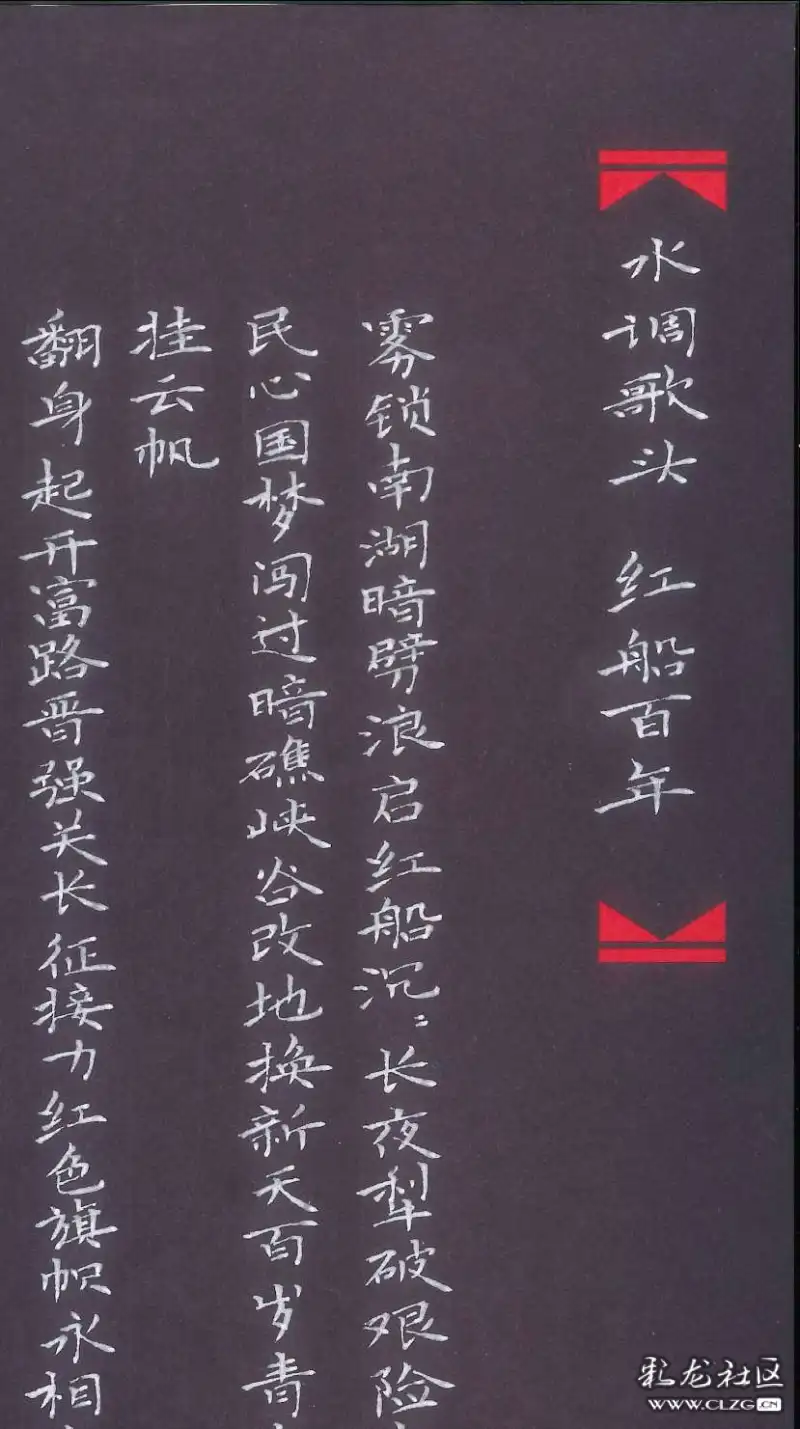 水调歌头 红船百年
雾锁南湖暗劈浪启红船沉：长夜犁破艰险
民心国梦闯过暗礁峡谷改地换新天百岁青
挂云帆
翻身起开富路晋强关长征接力红色旗帜永相
彩龙社区
WWW.CLZG.CN